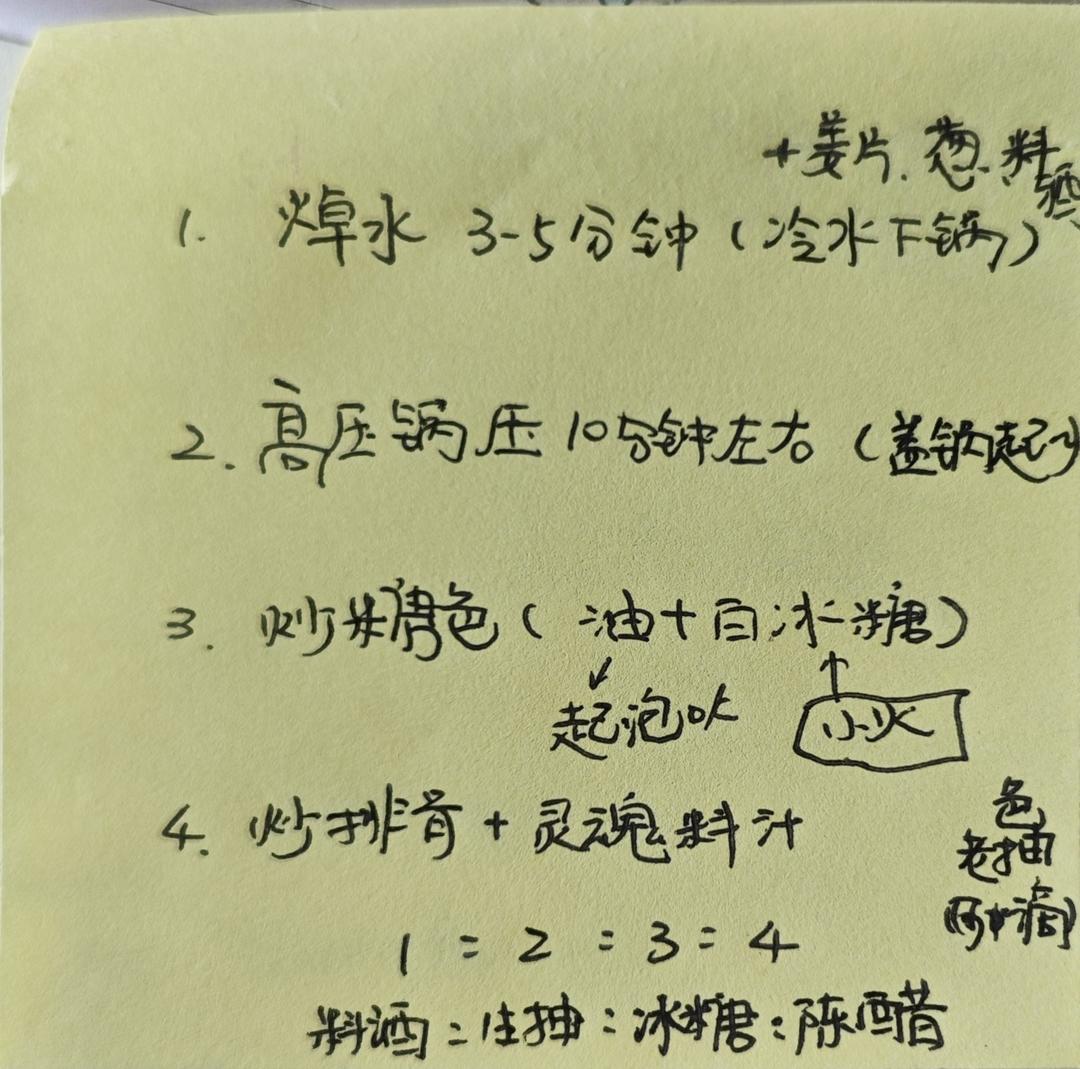 +姜片.葱.料酒
1. 焯水 3-5分钟（冷水下锅）
2. 高压锅压10分钟左右（盖锅起
3. 炒糖色（油+白冰糖）
起泡 小火
4. 炒排骨 + 灵魂料汁
色
老抽
滴）
1 : 2 : 3 : 4
料酒 : 生抽 : 冰糖 : 陈醋